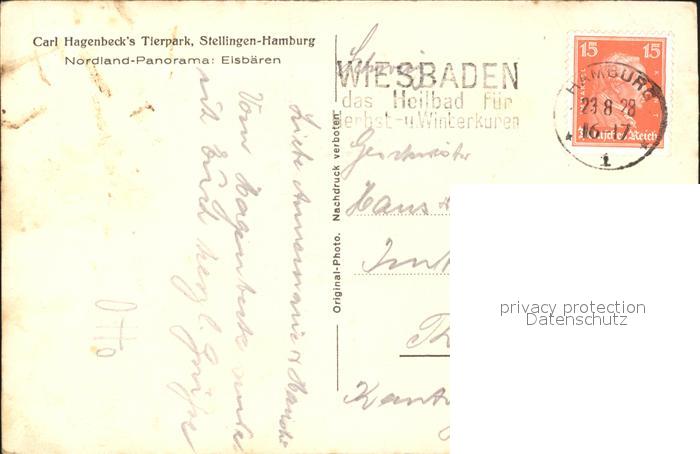 Carl Hagenbeck's Tierpark, Stellingen-Hamburg
Nordland-Panorama: Eisbären
Liebe Annemarie & Hansli
Vom Hagenbeck
Euch herzl. Grüße
Otto
Original-Photo. Nachdruck verboten.
WIESBADEN
das Heilbad für
Herbst- u. Winterkuren
15 15
Deutsches Reich
HAMBURG
23.8.28
16-17
* 1 *
Geschwister
Hans &
privacy protection
Datenschutz